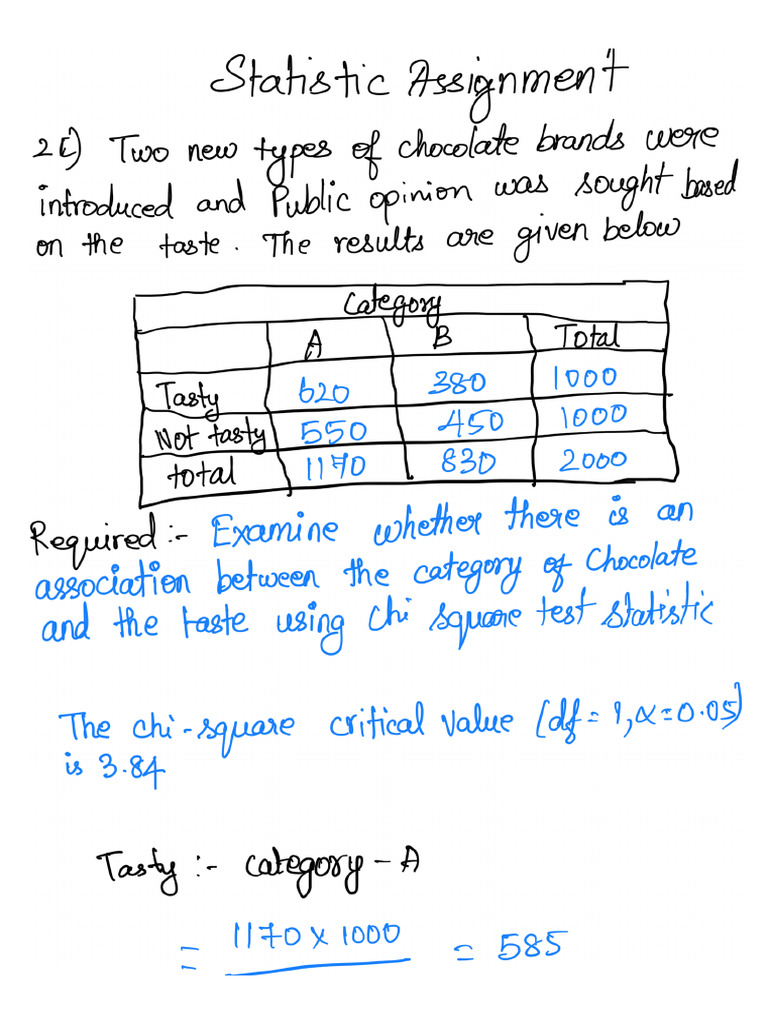 Statistic Assignment
2i) Two new types of chocolate brands were
introduced and Public opinion was sought based
on the taste. The results are given below
Category
A B Total
Tasty 620 380 1000
Not tasty 550 450 1000
total 1170 830 2000
Required:- Examine whether there is an
association between the category of Chocolate
and the taste using Chi square test statistic
The chi-square critical value (df = 1, α=0.05)
is 3.84
Tasty :- category - A
= 1170 x 1000 = 585